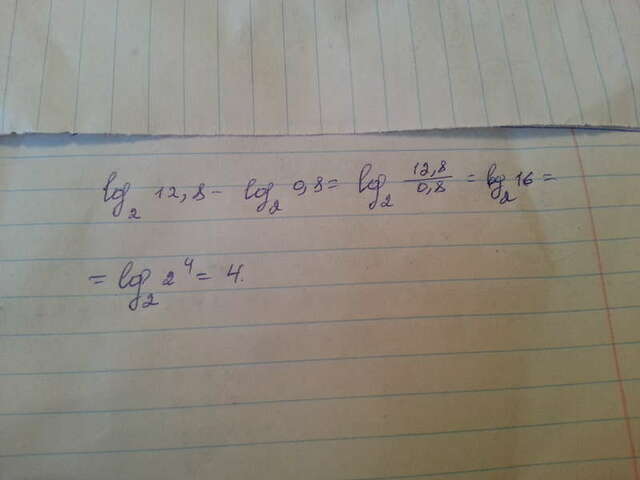 log₂ 12,8 - log₂ 0,8 = log₂ 12,8/0,8 = log₂ 16 =
= log₂ 2⁴ = 4.